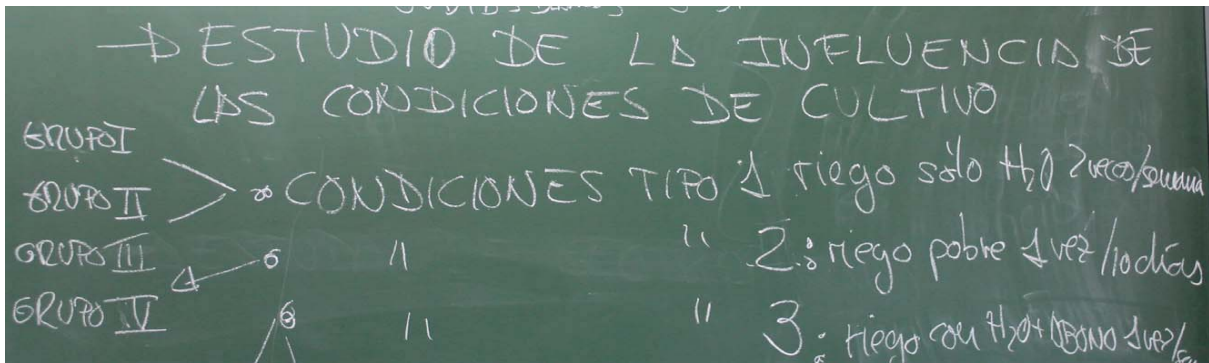 → ESTUDIO DE LA INFLUENCIA DE
LAS CONDICIONES DE CULTIVO
GRUPO I
GRUPO II
CONDICIONES TIPO 1 riego sólo H₂O 2 veces/semana
GRUPO III
" " 2: riego pobre 1 vez/10 días
GRUPO IV
" " 3: riego con H₂O + ABONO 1 vez/